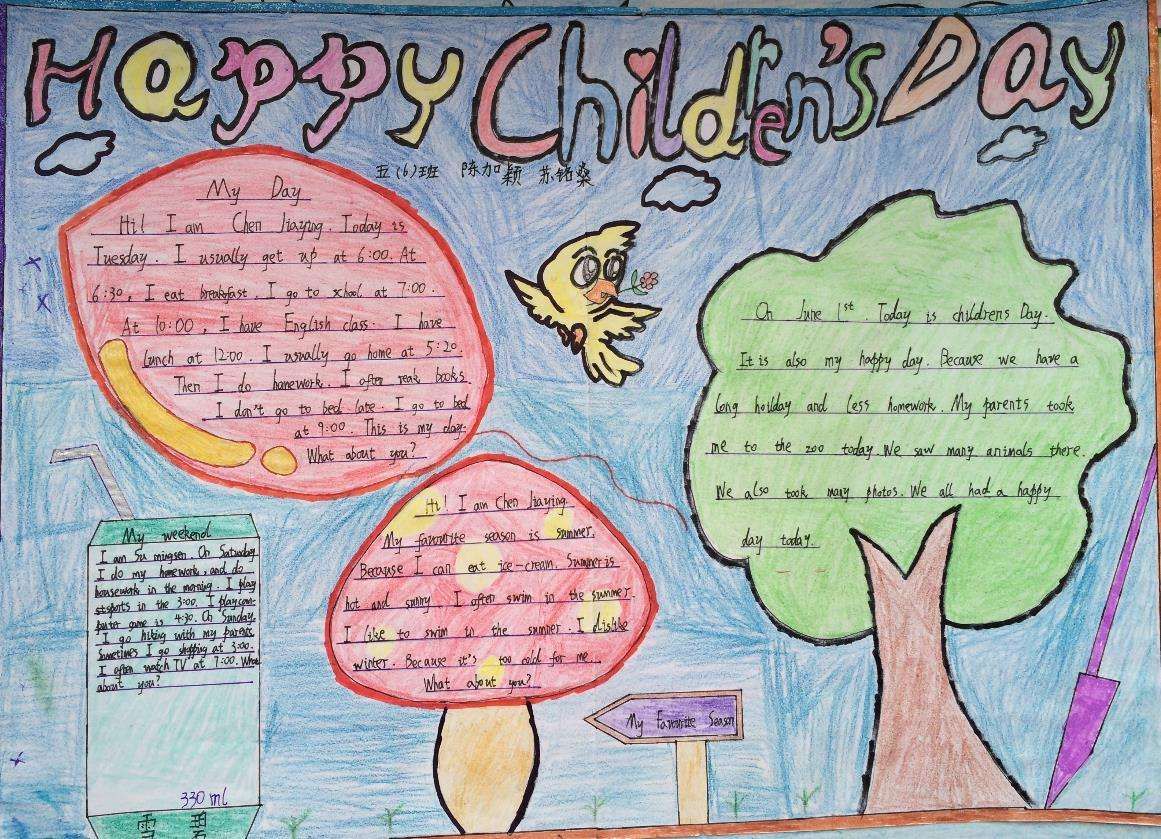 Happy Children's Day
五(6)班 陈加颖 苏铭桑
My Day
Hi! I am Chen Jiaying. Today is
Tuesday. I usually get up at 6:00. At
6:30, I eat breakfast. I go to school at 7:00.
At 10:00, I have English class. I have
lunch at 12:00. I usually go home at 5:20.
Then I do homework. I often reak books.
I don't go to bed late. I go to bed
at 9:00. This is my day.
What about you?
On June 1st. Today is childrens Day.
It is also my happy day. Because we have a
long hoilday and less homework. My parents took
me to the zoo today. We saw many animals there.
We also took many photos. We all had a happy
day today.
Hi! I am Chen Jiaying.
My favourite season is summer.
Because I can eat ice-cream. Summer is
hot and sunny. I often swim in the summer.
I like to swim in the summer. I dislike
winter. Because it's too cold for me.
What about you?
My Favourite Season
My weekend
I am Su mingsen. On Saturday
I do my homework, and do
housework in the morning. I play
sports in the 3:00. I play com-
puter game is 4:30. On Sunday.
I go hiking with my parents.
Sometimes I go shopping at 3:00.
I often watch TV at 7:00. What
about you?
330 ml
雪